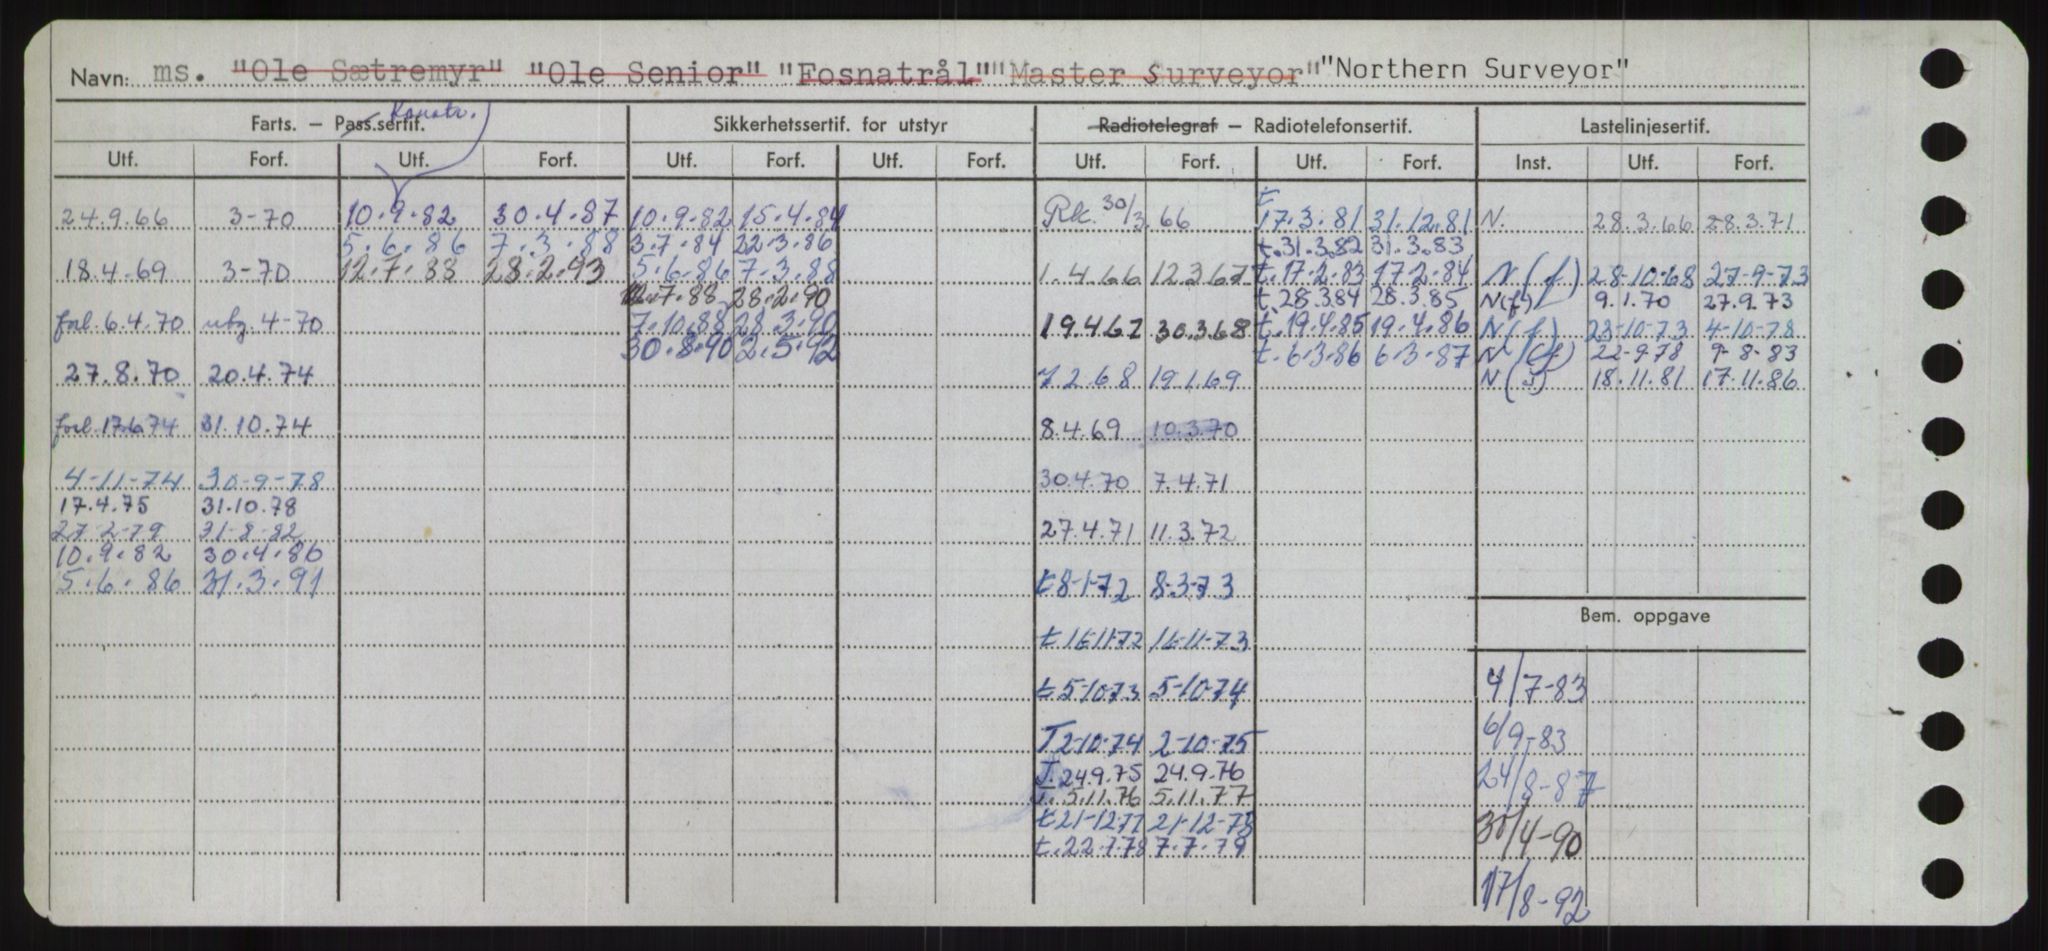 Navn: ms. "Ole Sætremyr" "Ole Senior" "Fosnatrål" "Master Surveyor" "Northern Surveyor"
Konstr.
Farts. – Pass.sertif. Sikkerhetssertif. for utstyr Radiotelegraf – Radiotelefonsertif. Lastelinjesertif.
Utf. Forf. Utf. Forf. Utf. Forf. Utf. Forf. Utf. Forf. Utf. Forf. Inst. Utf. Forf.
24.9.66 3-70 10.9.82 30.4.87 10.9.82 15.4.84 Rk. 30/3.66 t 17.3.81 31.12.81 N. 28.3.66 28.3.71
5.6.86 7.3.88 3.7.84 22.3.86 t.31.3.82 31.3.83
18.4.69 3-70 12.7.88 28.2.93 5.6.86 7.3.88 1.4.66 12.3.67 t.17.2.83 17.2.84 N(f) 28-10-68 27-9-73
12.7.88 28.2.90 t.28.3.84 28.3.85 N(f) 9.1.70 27.9.73
forl. 6.4.70 utg. 4-70 7.10.88 28.3.90 19.4.67 30.3.68 t.19.4.85 19.4.86 N(f) 23-10-73 4-10-78
30.8.90 2.5.92 t.6.3.86 6.3.87 N(f) 22-9-78 9-8-83
27.8.70 20.4.74 7.2.68 19.1.69 N(f) 18.11.81 17.11.86
forl. 17.6.74 31.10.74 8.4.69 10.3.70
4-11-74 30-9-78 30.4.70 7.4.71
17.4.75 31.10.78
27-2-79 31-8-82 27.4.71 11.3.72
10.9.82 30.4.86
5.6.86 31.3.91 t 8-1-72 8-3-73
Bem. oppgave
t 16-11-72 16-11-73
4/7-83
t 5-10-73 5-10-74
6/9-83
T 2-10-74 2-10-75
T. 24.9.75 24.9.76 24/8-87
T. 5.11.76 5.11.77
t 21-12-77 21-12-78 30/4-90
t. 22.7.78 7.7.79
17/8-92